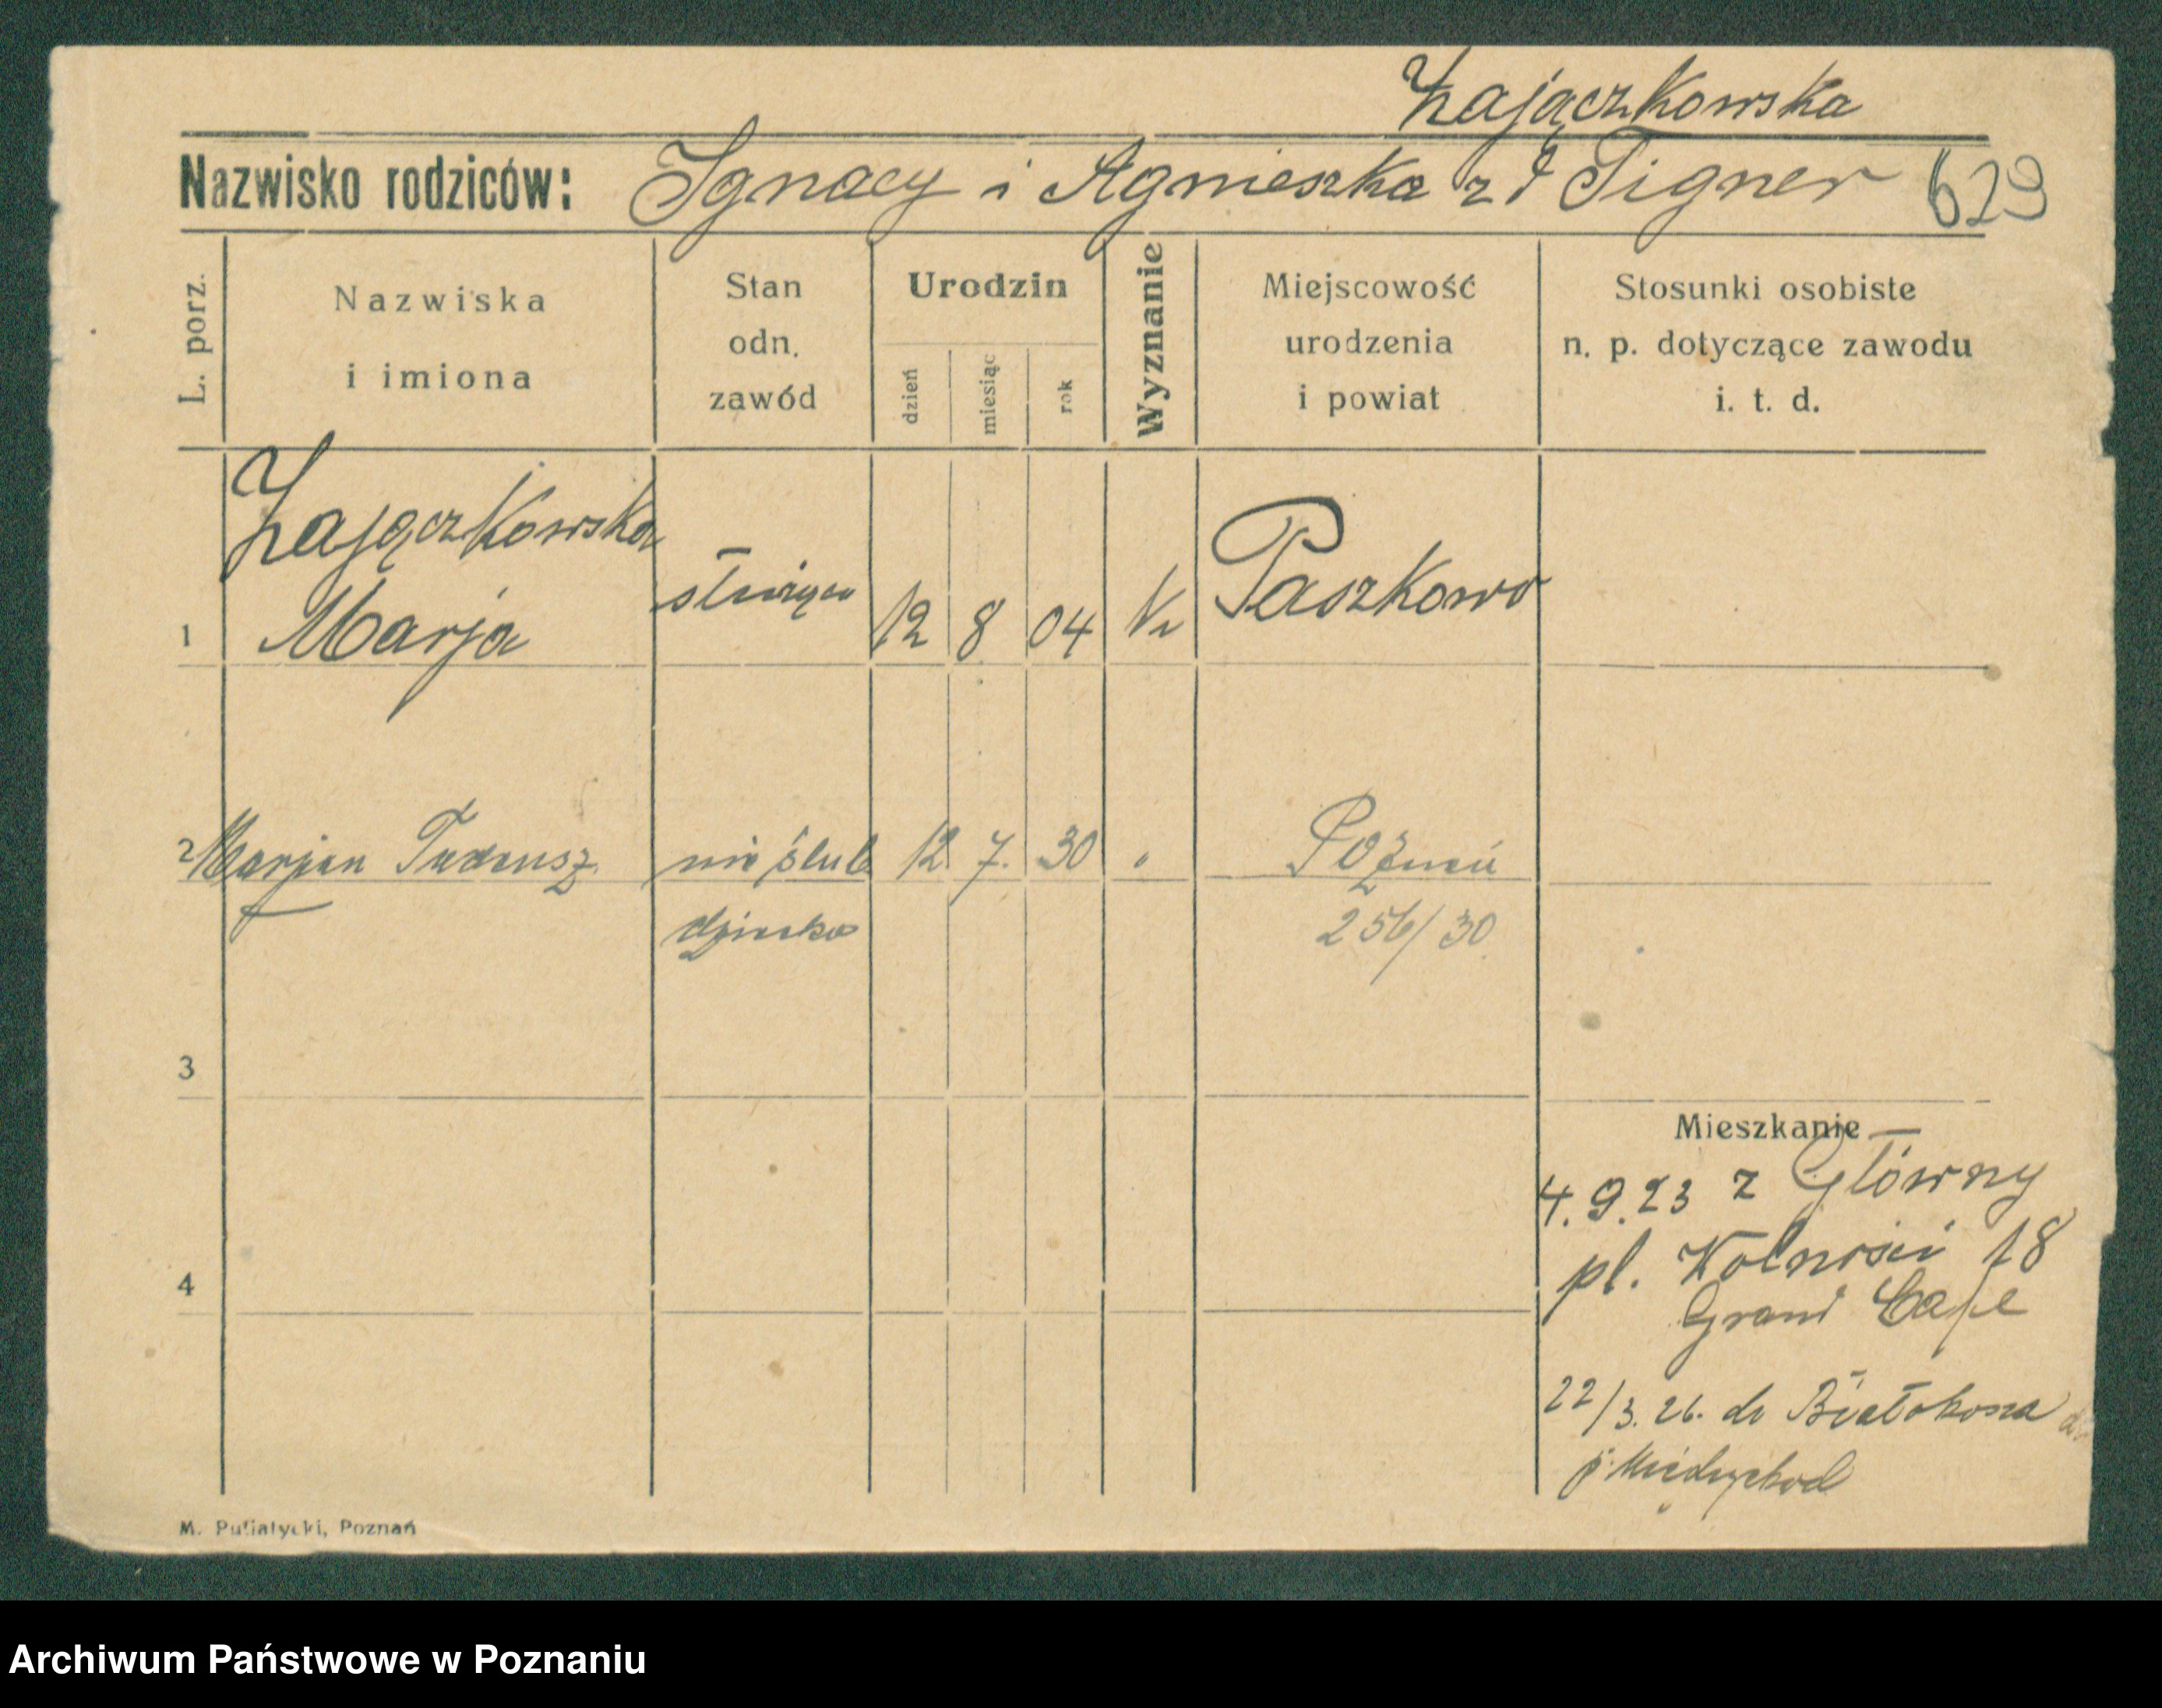 Zajączkowska
Nazwisko rodziców: Ignacy i Agnieszka z d Tigner 629
L. porz.
Nazwiska
i imiona
Stan
odn.
zawód
Urodzin
dzień
miesiąc
rok
Wyznanie
Miejscowość
urodzenia
i powiat
Stosunki osobiste
n. p. dotyczące zawodu
i. t. d.
1 Zajączkowska
Marja
służąca 12 8 04 Paszkowo
2 Marjan Tadeusz nieślub 12. 7. 30 " Poznań
dziecko 256/30.
3
4
Mieszkanie
4.9.23 z Główny
pl. Wolności 18
Grand Cafe
22/3.26. do Białokosza
p. Międzychod
M. Putiatycki, Poznań
Archiwum Państwowe w Poznaniu